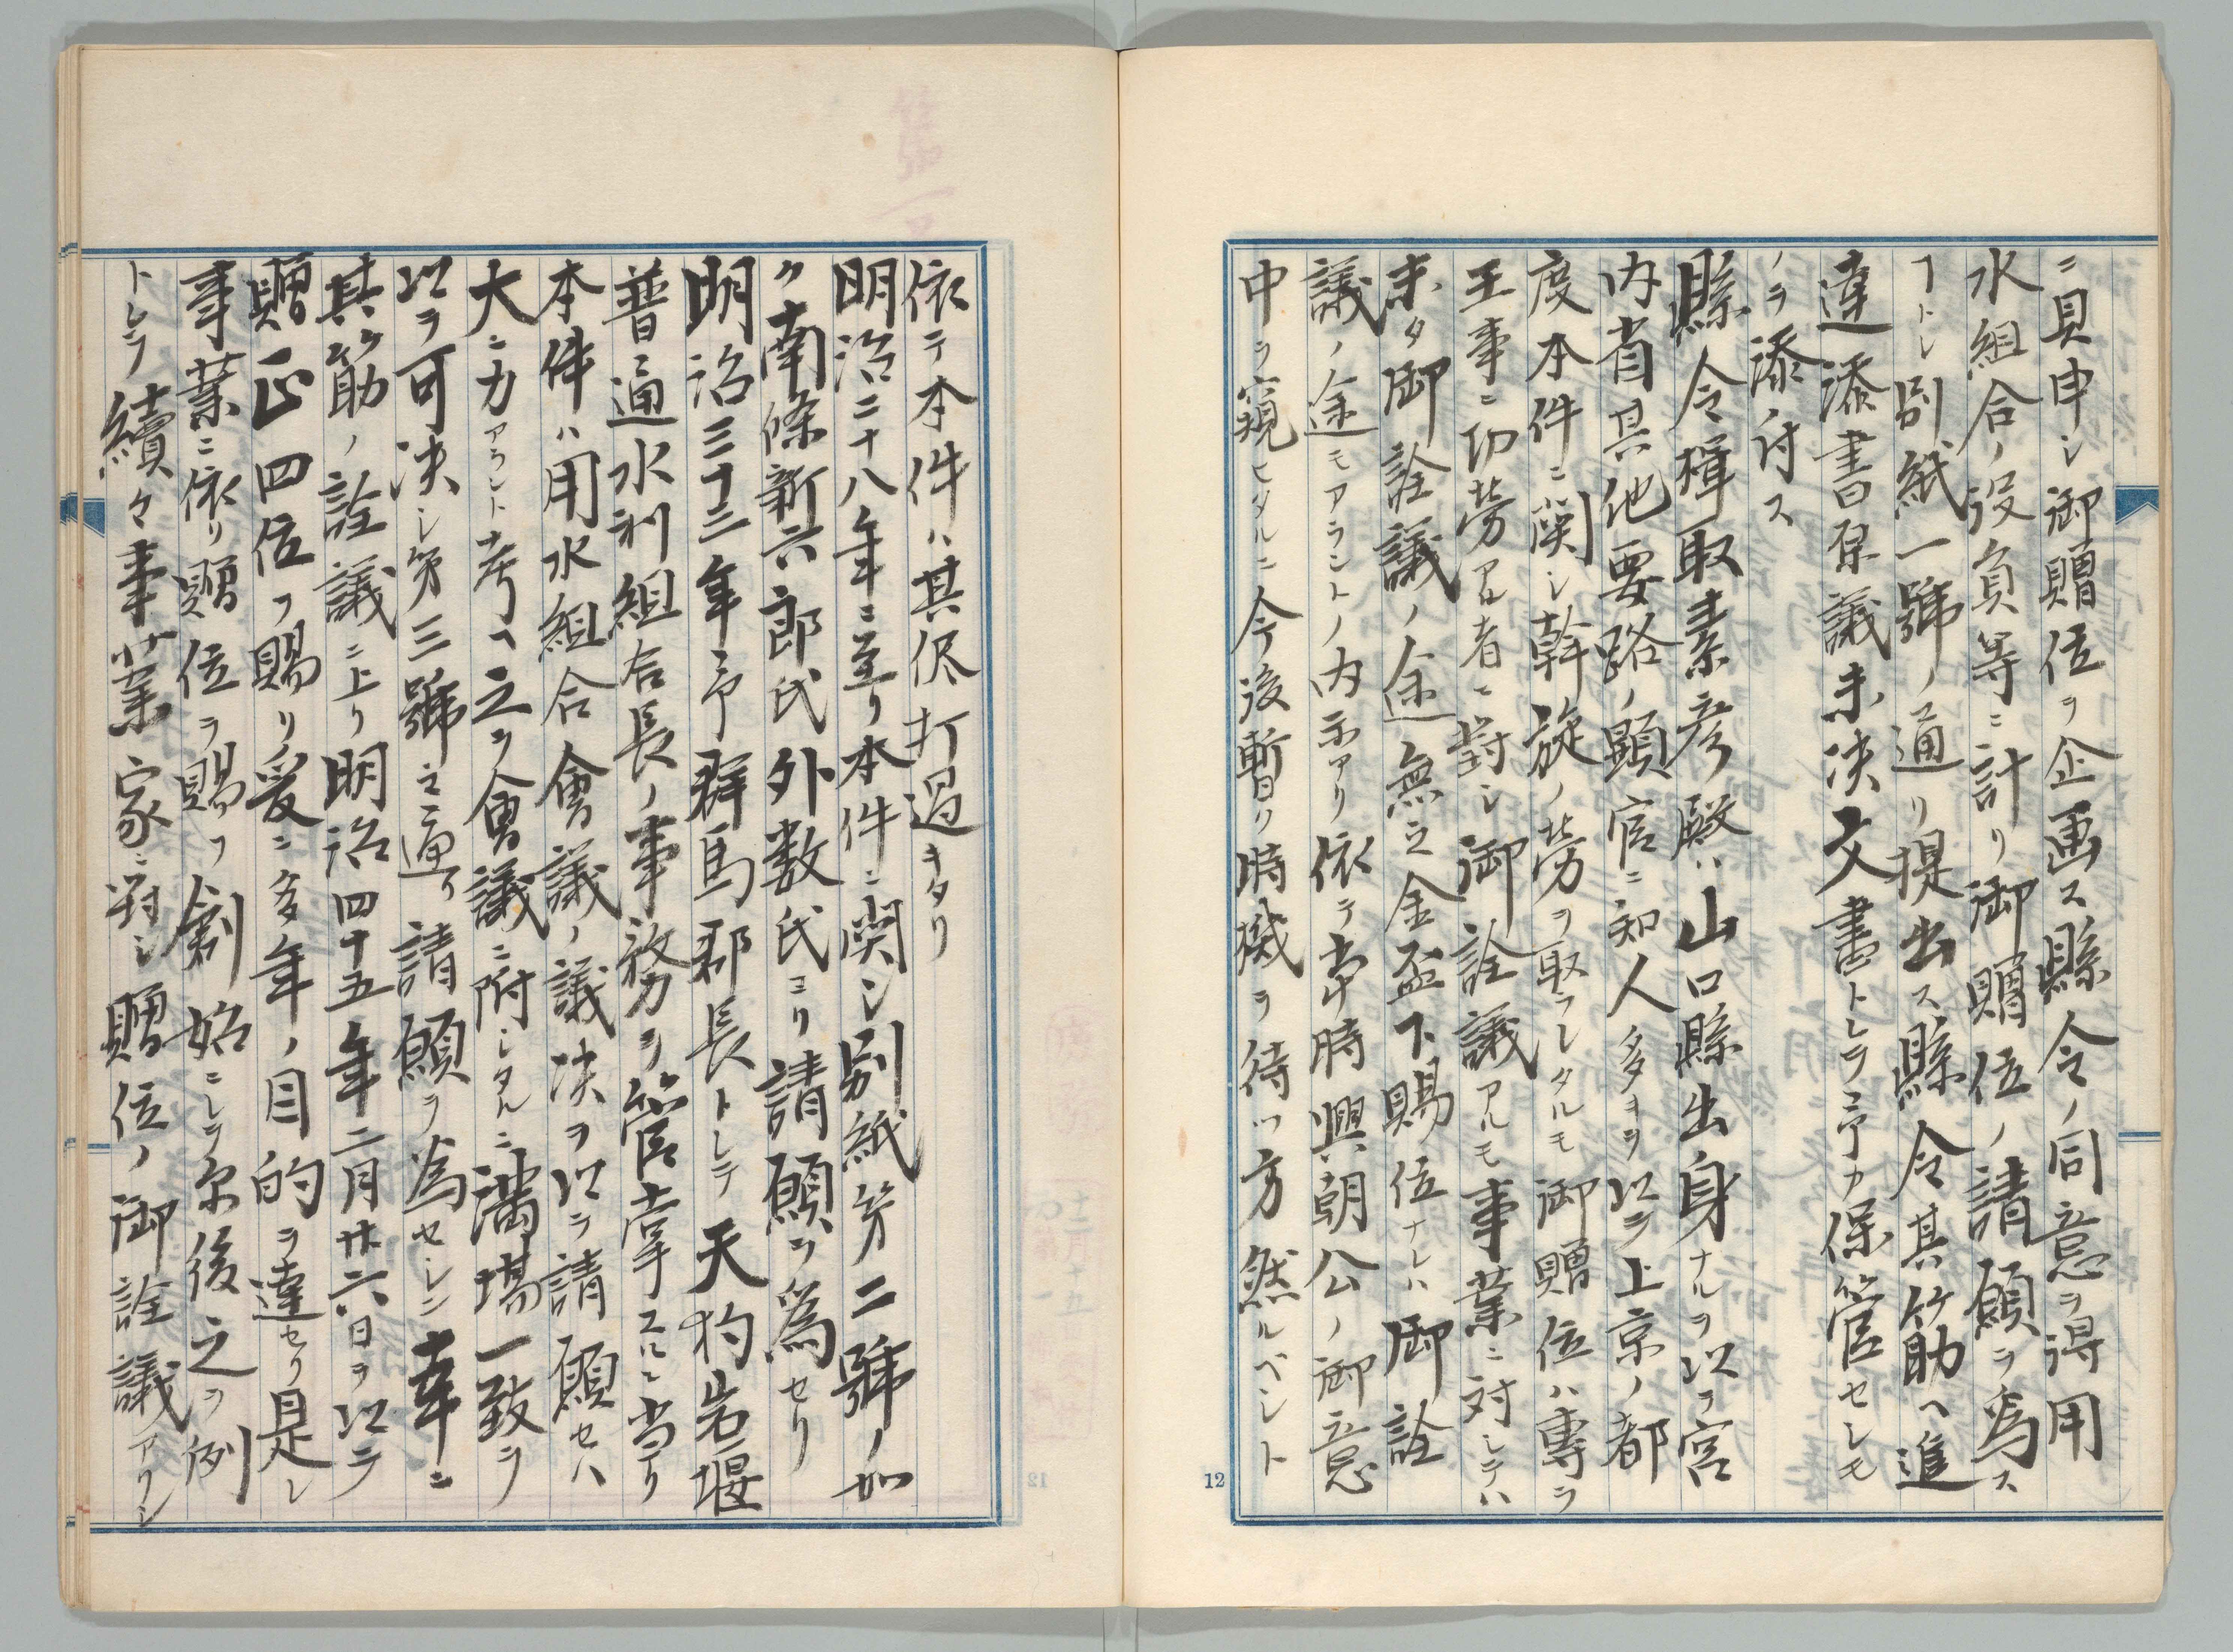 ニ具申シ御贈位ヲ企画ス縣令ノ同意ヲ得用
水組合ノ役員等ニ計リ御贈位ノ請願ヲ為ス
ヿトシ別紙一號ノ通リ提出ス縣令其筋ヘ進
達添書保議未决文書トシテ予カ保管セシモ
ノヲ添付ス
縣令楫取素彦殿ハ山口縣出身ナルヲ以テ宮
内省其他要路ノ顕官ニ知人多キヲ以テ上京ノ都
度本件ニ関シ幹旋ノ労ヲ取ラレタルモ御贈位ハ専ラ
王事ニ功労アル者ニ對シ御詮議アルモ事業ニ対シテハ
未タ御詮議ノ途無之金盃下賜位ナレハ御詮
議ノ途モアラントノ内示アリ依テ當時興朝公ノ御意
中ヲ窺ヒタルニ今後暫ク時機ヲ待ツ方然ルベシト
12
依テ本件ハ其侭打過キタリ
明治二十八年ニ至リ本件ニ関シ別紙第二號ノ如
ク南條新六郎氏外数氏ヨリ請願ヲ為セリ
明治三十三年予群馬郡長トシテ天狗岩堰
普通水利組合長ノ事務ヲ管掌スルニ当リ
本件ハ用水組合會議ノ議决ヲ以テ請願セハ
大ニ力アラント考ヘ之ヲ會議ニ附シタルニ満場一致ヲ
以テ可决シ第三號之通リ請願ヲ為セシニ幸ニ
其筋ノ詮議ニ上リ明治四十五年二月廿六日ヲ以テ
贈正四位ヲ賜リ爰ニ多年ノ目的ヲ達セリ是レ
事業ニ依リ贈位ヲ賜フ創始ニシテ尓後之ヲ例
トシテ續々事業家ニ對シ贈位ノ御詮議アリシ